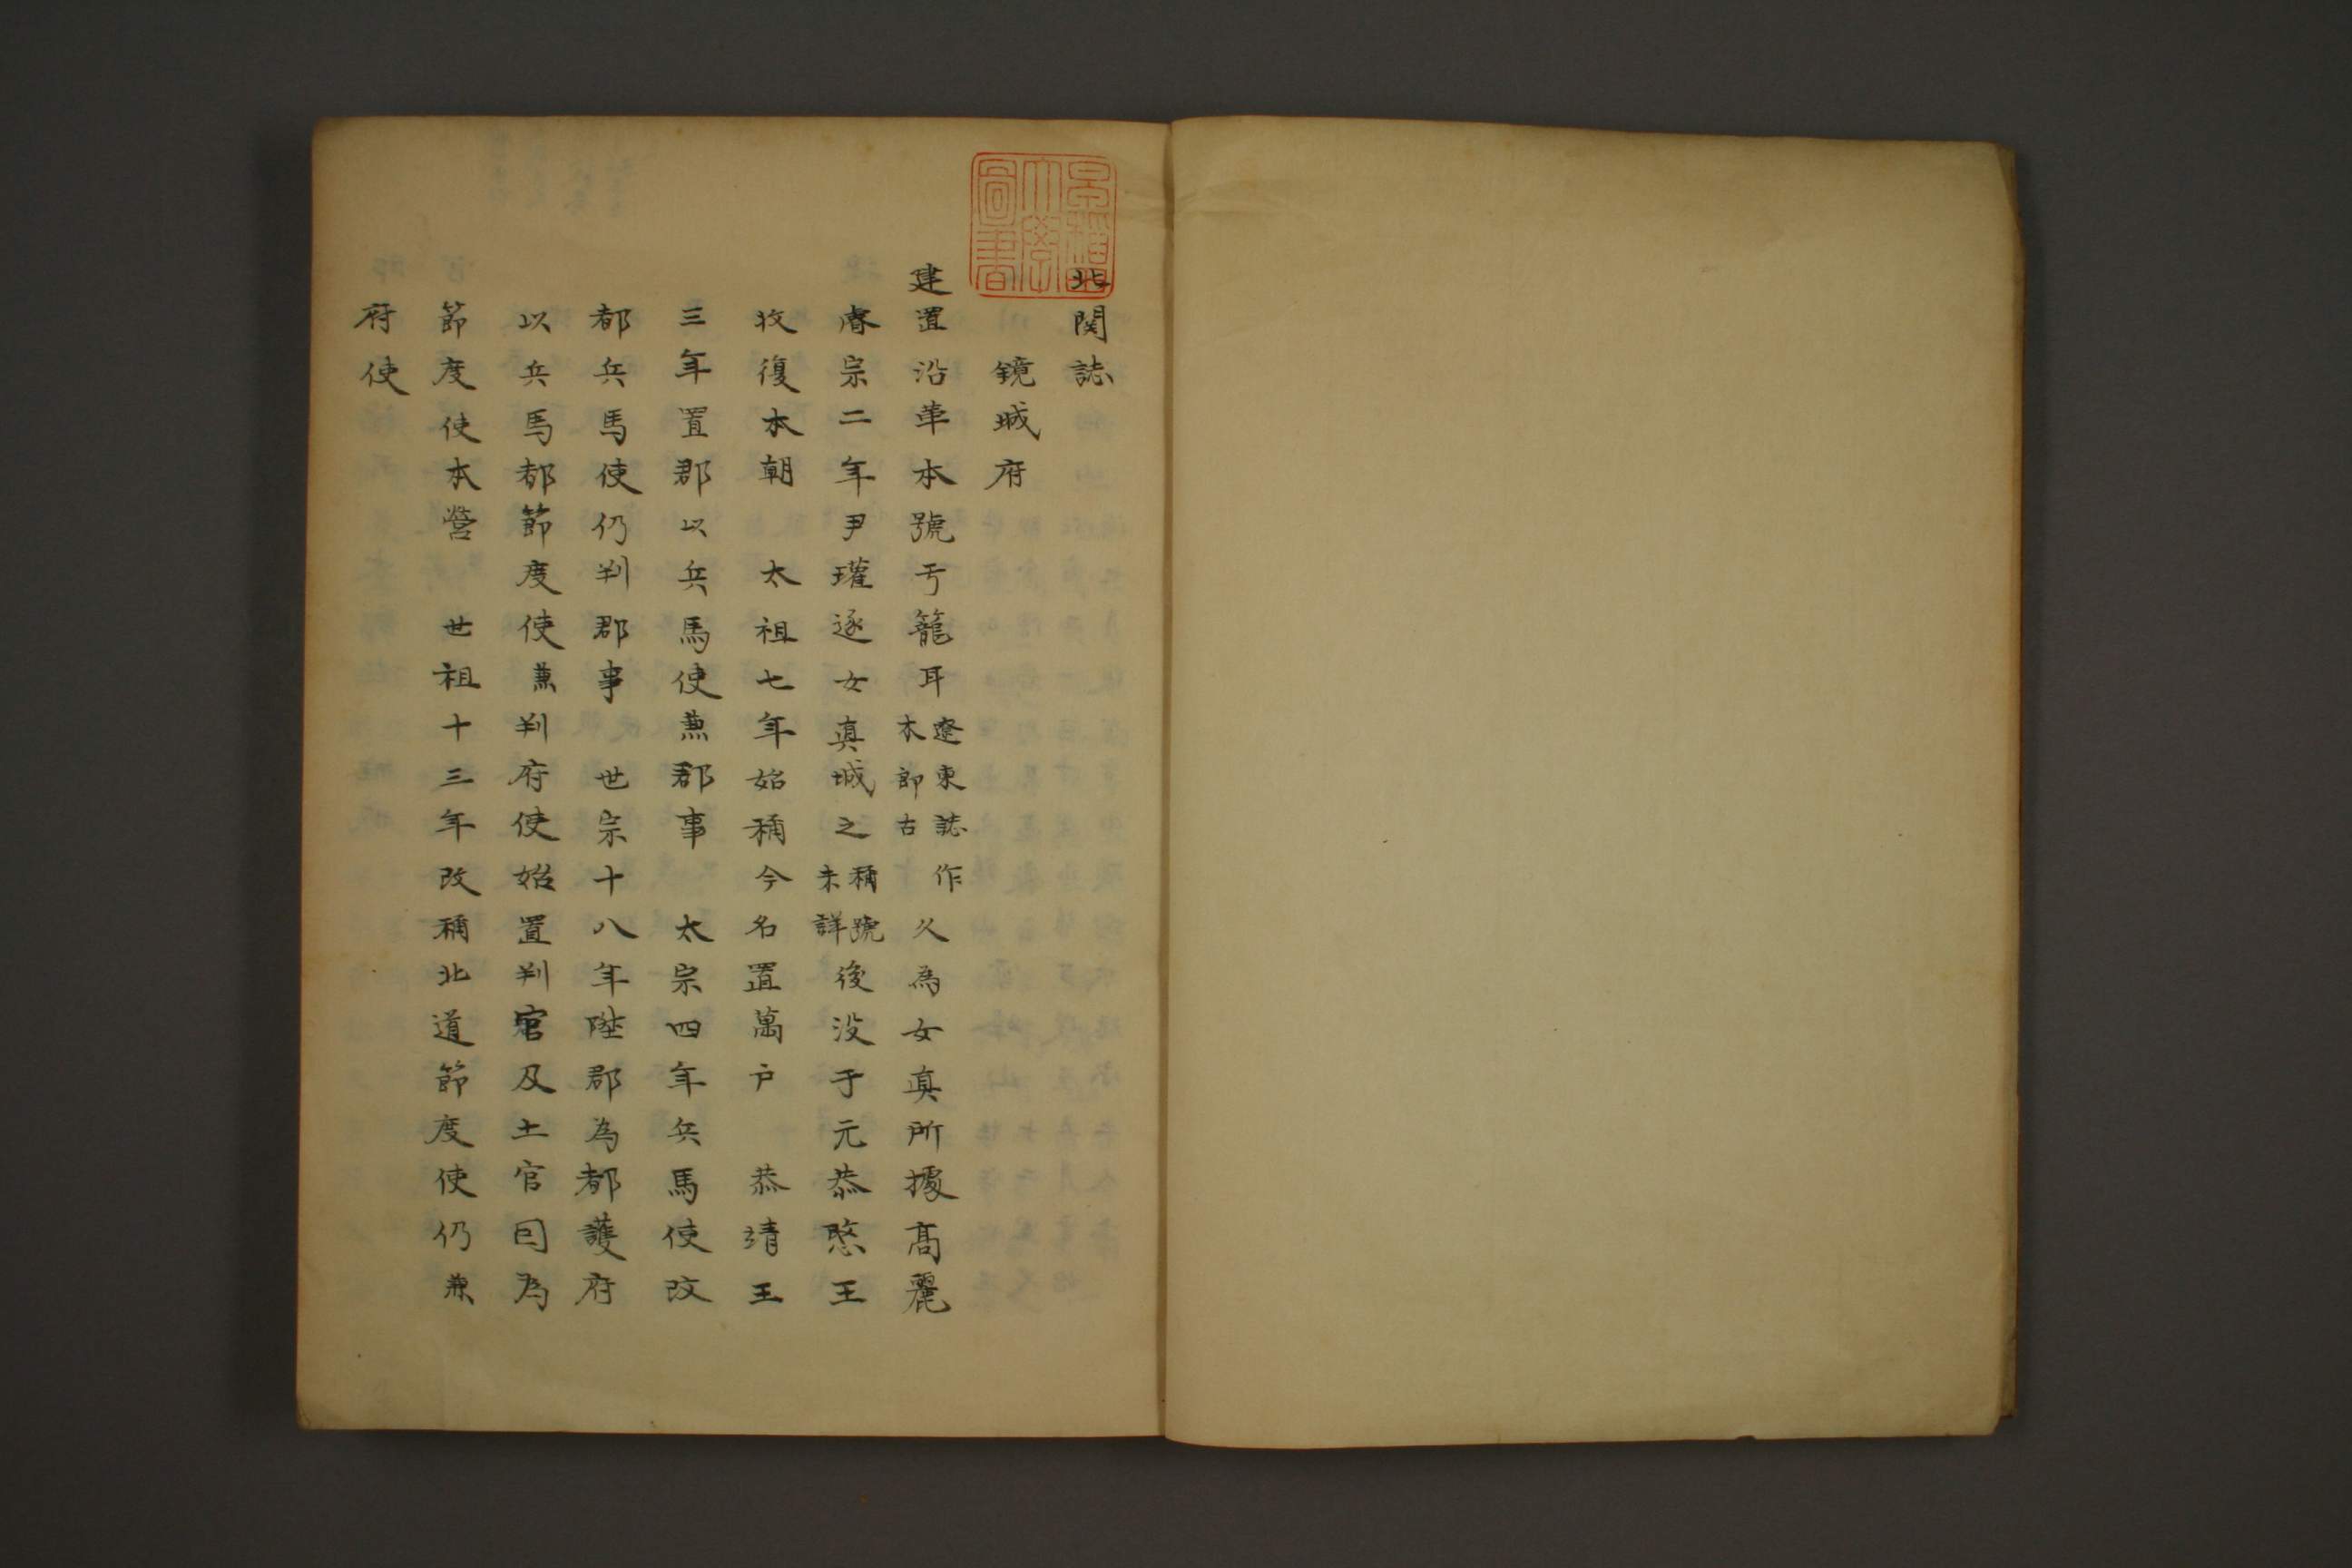 北関誌
鏡城府
建置沿革本號亐籠耳遼東誌作木郎古久為女真所據髙麗
睿宗二年尹瓘逐女真城之稱號未詳後没于元恭愍王
收復本朝 太祖七年始稱今名置萬户 恭靖王
三年置郡以兵馬使兼郡事 太宗四年兵馬使改
都兵馬使仍判郡事 世宗十八年陞郡為都護府
以兵馬都節度使兼判府使始置判官及土官囙為
節度使本營 世祖十三年改稱北道節度使仍兼
府使
京城大學圖書